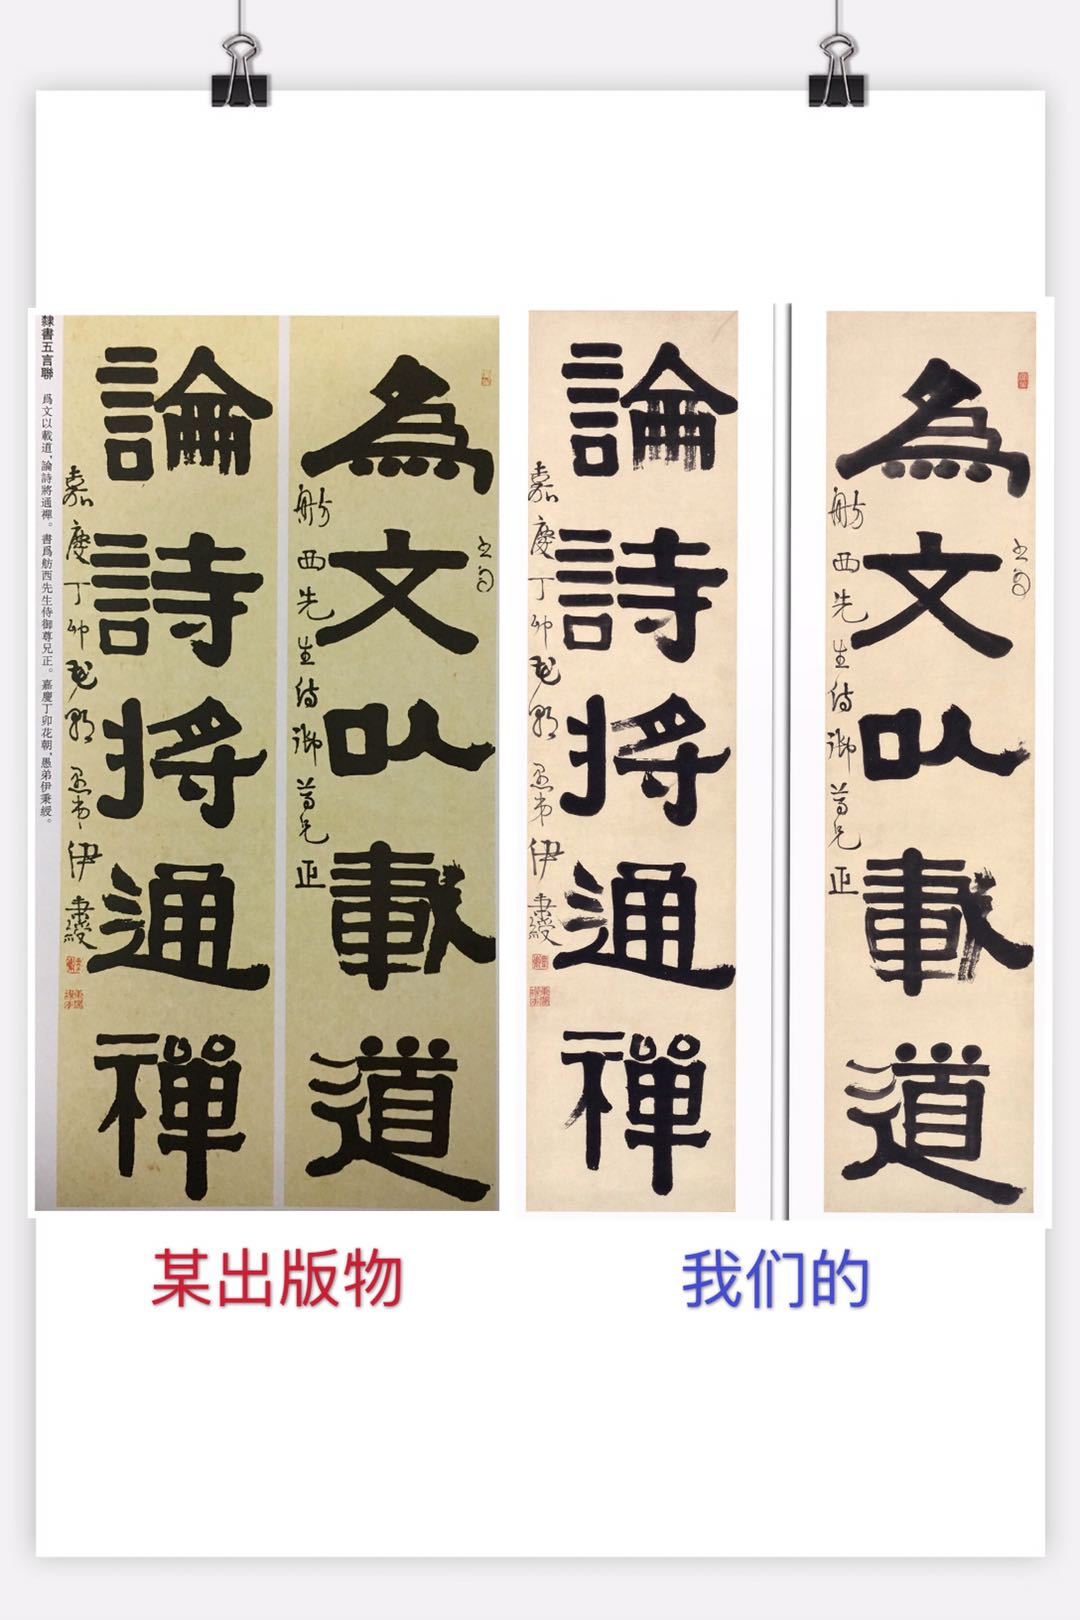 隸書五言聯 爲文以載道,論詩將通禪。書爲舫西先生侍御尊兄正。嘉慶丁卯花朝,愚弟伊秉綬。
為文以載道
舫西先生侍御尊兄正
論詩將通禪
嘉慶丁卯花朝愚弟伊秉綬
為文以載道
舫西先生侍御尊兄正
論詩將通禪
嘉慶丁卯花朝愚弟伊秉綬
某出版物
我们的